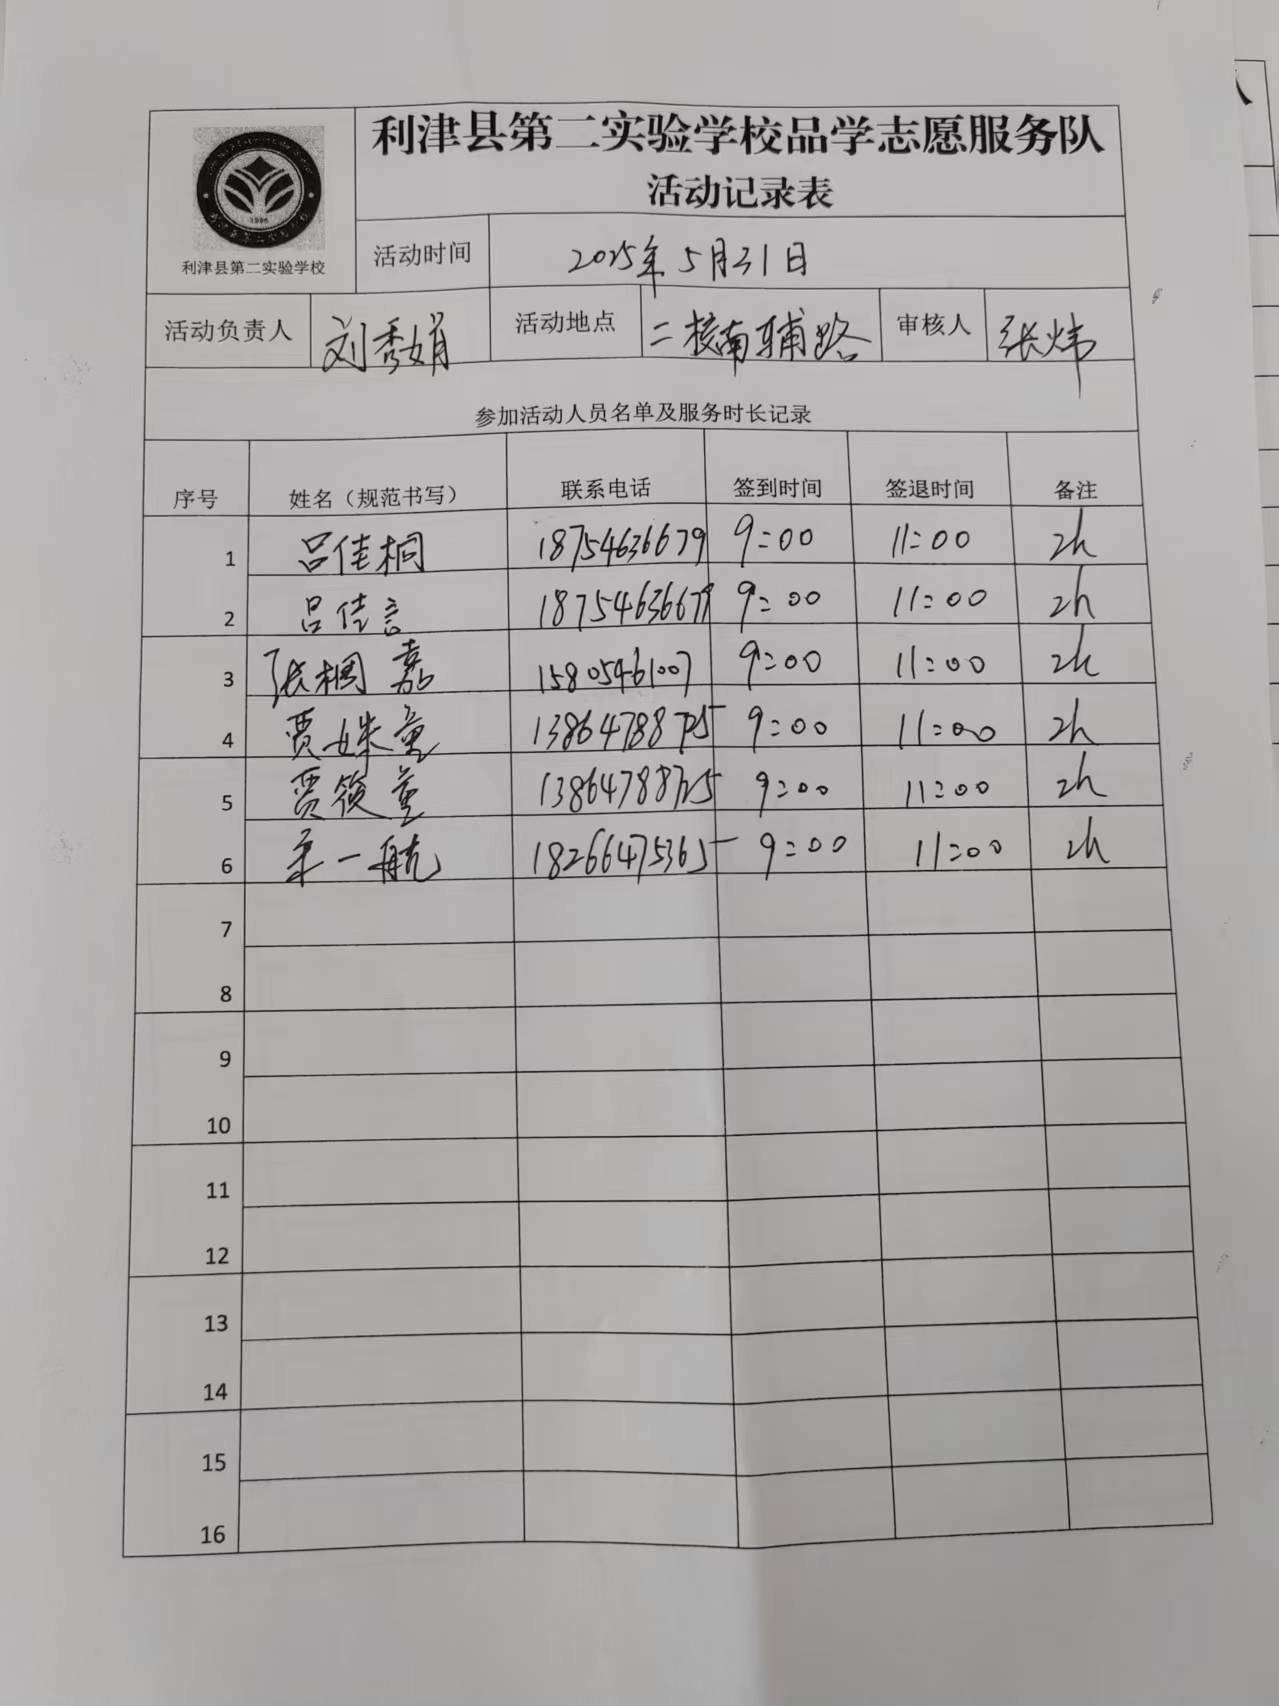 利津县第二实验学校品学志愿服务队
活动记录表
1996
利津县第二实验学校
活动时间 2025年5月31日
活动负责人 刘秀娟 活动地点 二校南辅路 审核人 张炜
参加活动人员名单及服务时长记录
序号 姓名（规范书写） 联系电话 签到时间 签退时间 备注
1 吕佳桐 18754636679 9:00 11:00 2h
2 吕佳言 18754636679 9:00 11:00 2h
3 张桐嘉 15805461007 9:00 11:00 2h
4 贾姝童 13864788725 9:00 11:00 2h
5 贾筱童 13864788725 9:00 11:00 2h
6 一航 18266475365 9:00 11:00 2h
7
8
9
10
11
12
13
14
15
16